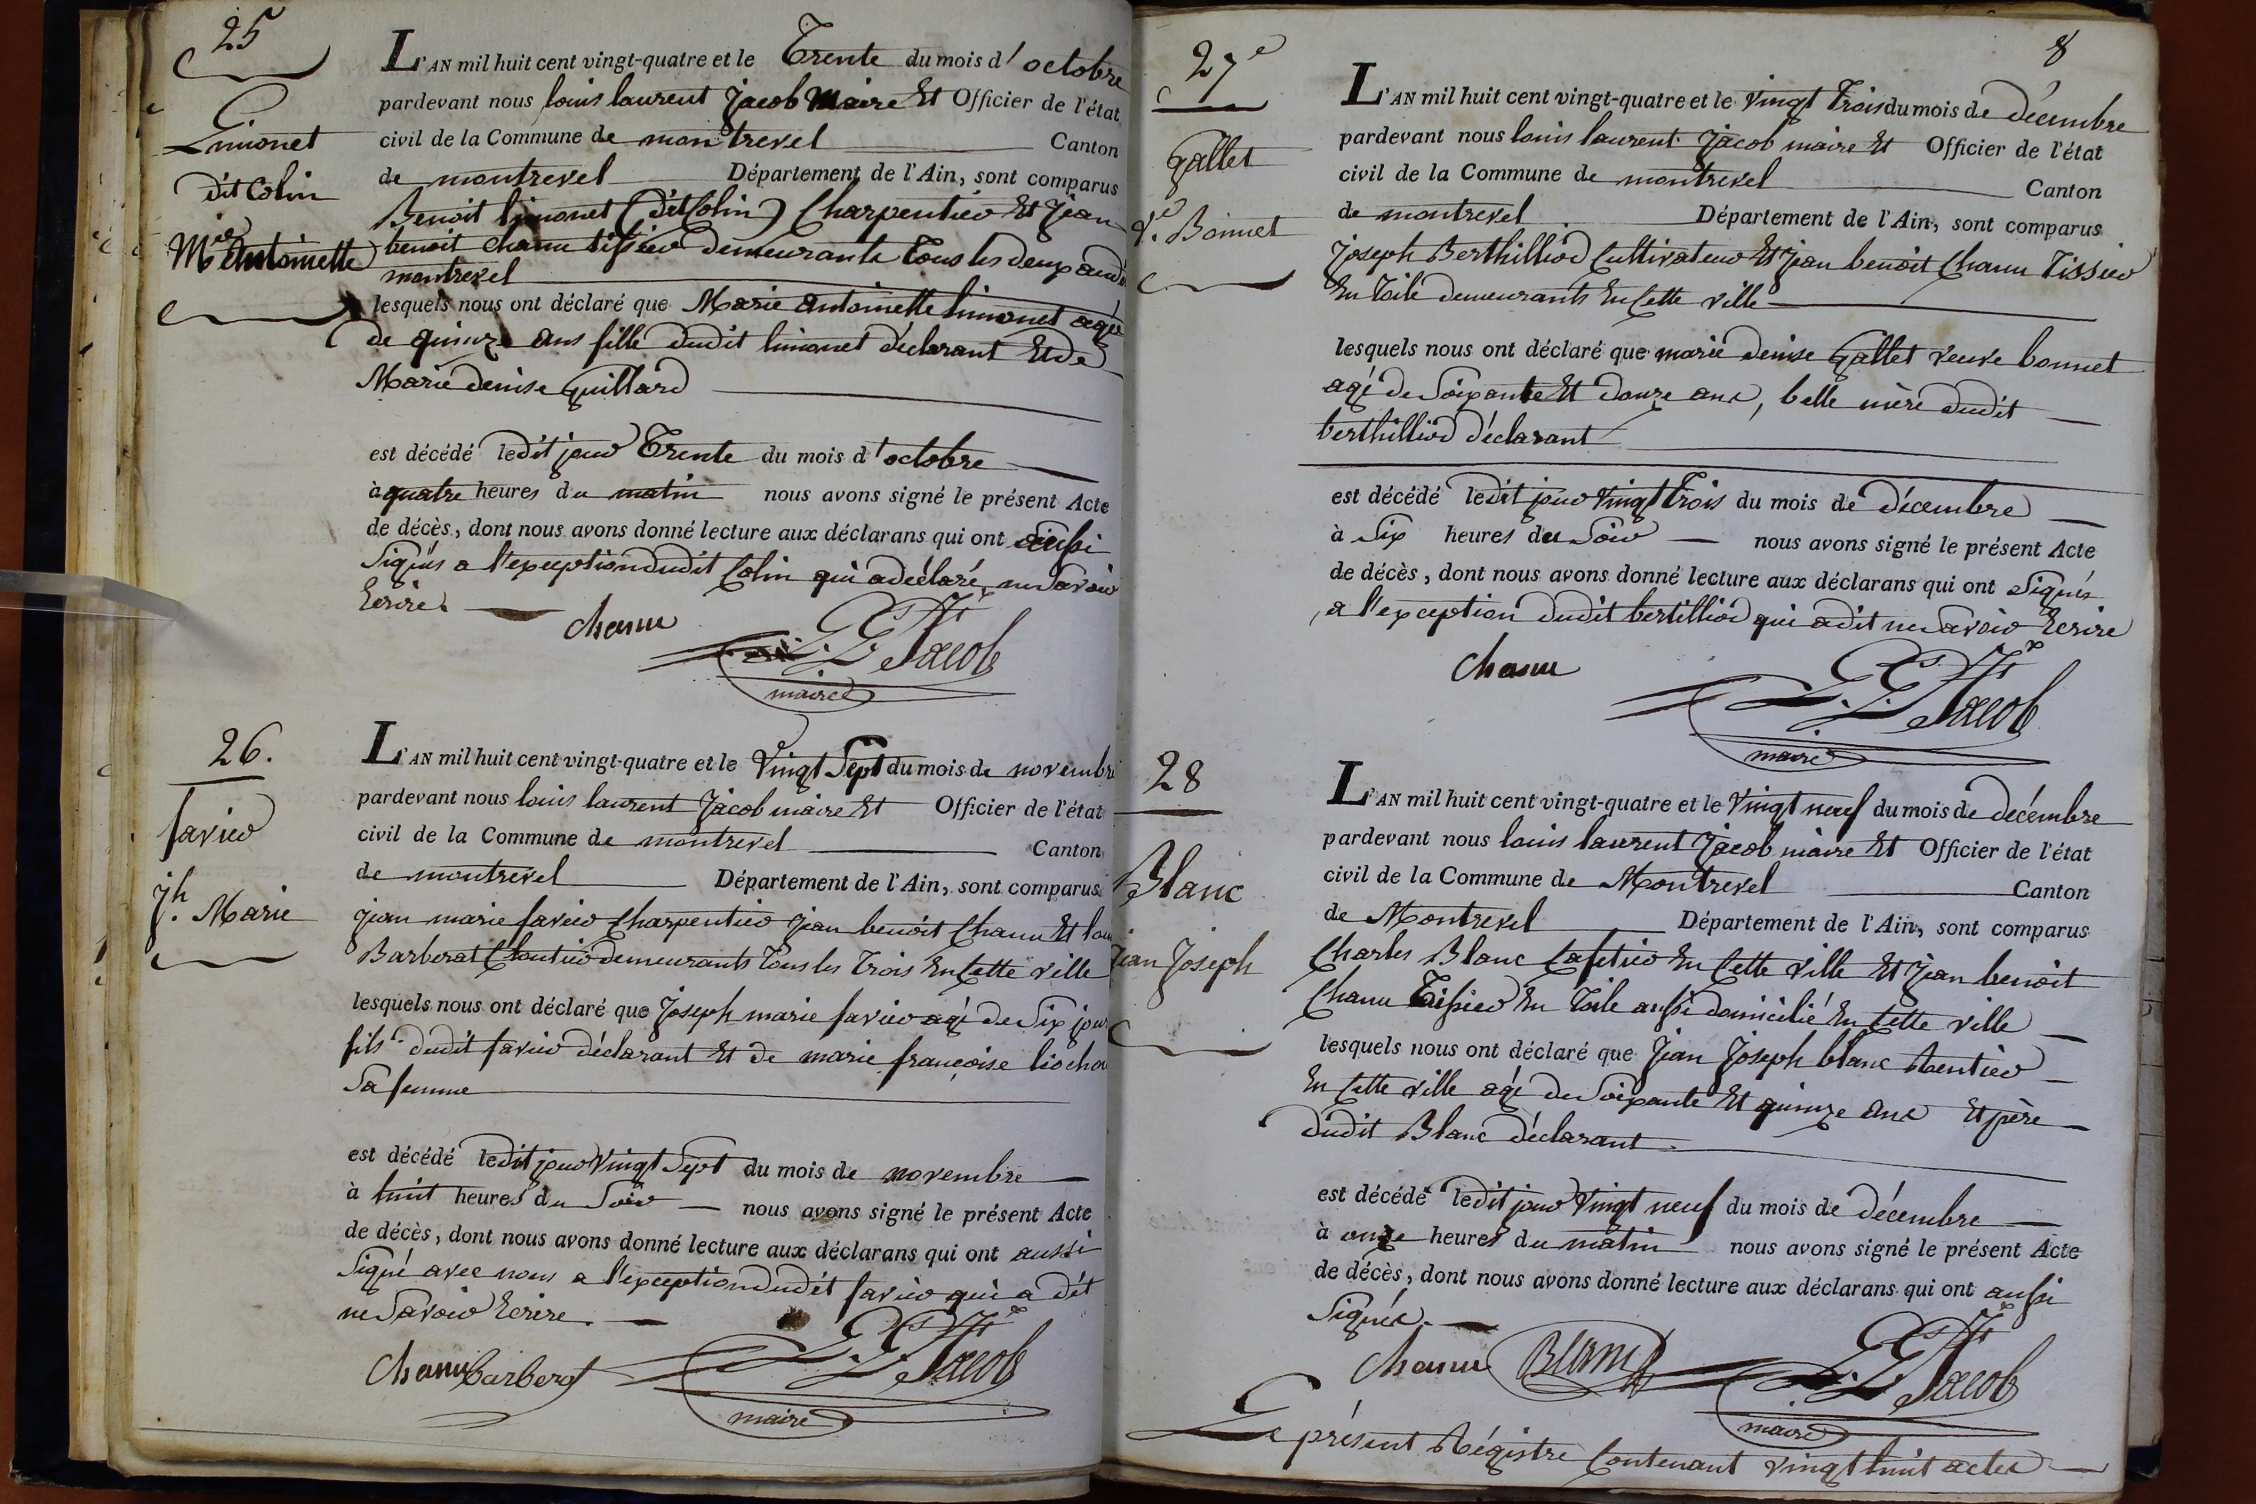 25
Limonet
dit Colin
Mie Antoinette
L'AN mil huit cent vingt-quatre et le Trente du mois d'octobre
pardevant nous louis laurent Jacob Maire Et Officier de l'état
civil de la Commune de montrevel Canton
de montrevel Département de l'Ain, sont comparus
Benoit limonet (dit Colin) Charpentier Et Jean
benoit chanu tissier demeurants Tous les deux
montrevel
lesquels nous ont déclaré que Marie antoinette limonet agée
de quinze ans fille dudit limonet déclarant Et de
Marie denise Guillard
est décédé ledit jour Trente du mois d'octobre
à quatre heures du matin nous avons signé le présent Acte
de décès, dont nous avons donné lecture aux déclarans qui ont aussi
Signés a l'exception dudit Colin qui a déclaré ne Savoir
Ecrire.
Chanu
L. Lt Jacob
maire
26.
favier
Jh. Marie
L'AN mil huit cent vingt-quatre et le Vingt Sept du mois de novembre
pardevant nous louis laurent Jacob maire Et Officier de l'état
civil de la Commune de montrevel Canton
de montrevel Département de l'Ain, sont comparus
jean marie favier Charpentier jean benoit Chanu Et
Barberat Cloutier demeurants Tous les Trois En Cette ville
lesquels nous ont déclaré que Joseph marie favier agé de Six jours
fils dudit favier déclarant Et de marie françoise
Sa femme
est décédé ledit jour Vingt Sept du mois de novembre
à huit heures du Soir nous avons signé le présent Acte
de décès, dont nous avons donné lecture aux déclarans qui ont aussi
Signé avec nous a l'exception dudit favier qui a dit
ne Savoir Ecrire.
Chanu barberat
L. Lt Jacob
maire
8
27e
Gallet
Ve. Bonnet
L'AN mil huit cent vingt-quatre et le Vingt Trois du mois de décembre
pardevant nous louis laurent Jacob maire Et Officier de l'état
civil de la Commune de montrevel Canton
de montrevel Département de l'Ain, sont comparus
Joseph Berthilliod Cultivateur Et jean benoit Chanu Tissier
En Toile demeurants En Cette ville
lesquels nous ont déclaré que marie denise Gallet veuve bonnet
agé de Soixante Et douze ans, belle mère dudit
berthilliod déclarant
est décédé ledit jour Vingt Trois du mois de décembre
à Six heures du Soir nous avons signé le présent Acte
de décès, dont nous avons donné lecture aux déclarans qui ont Signés
a l'exception dudit bertilliod qui a dit ne Savoir Ecrire
Chanu
L. Lt Jacob
maire
28
Blanc
Jean Joseph
L'AN mil huit cent vingt-quatre et le Vingt neuf du mois de décembre
pardevant nous louis laurent Jacob maire Et Officier de l'état
civil de la Commune de Montrevel Canton
de Montrevel Département de l'Ain, sont comparus
Charles Blanc Cafetier En Cette ville Et Jean benoit
Chanu Tissier En Toile aussi domicilié En Cette ville
lesquels nous ont déclaré que Jean Joseph blanc Rentier
En Cette ville agé de Soixante Et quinze ans Et père
dudit Blanc déclarant
est décédé ledit jour Vingt neuf du mois de décembre
à onze heures du matin nous avons signé le présent Acte
de décès, dont nous avons donné lecture aux déclarans qui ont aussi
Signés.
Chanu Blanc
L. Lt Jacob
maire
Le présent Régistre Contenant vingt huit actes